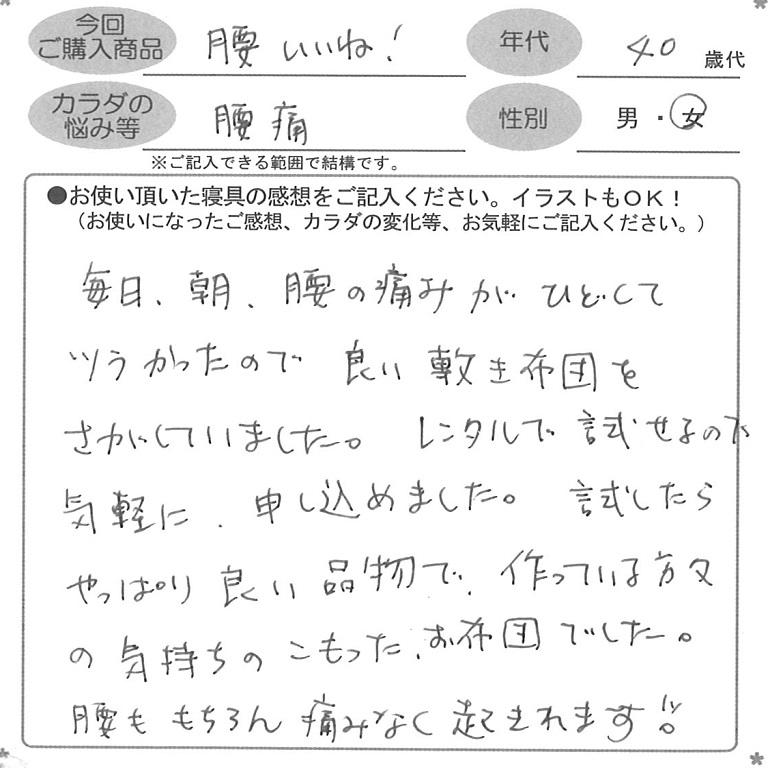 今回
ご購入商品
腰いいね!
年代
40 歳代
カラダの
悩み等
腰痛
性別
男・女
※ご記入できる範囲で結構です。
●お使い頂いた寝具の感想をご記入ください。イラストもOK!
(お使いになったご感想、カラダの変化等、お気軽にご記入ください。)
毎日、朝、腰の痛みが ひどくて
ツラかったので 良い 敷き布団を
さがしていました。 レンタルで 試せるので
気軽に、申し込めました。 試したら
やっぱり 良い 品物で、作っている方々
の 気持ちの こもった、お布団でした。
腰も もちろん 痛みなく 起きれます!!